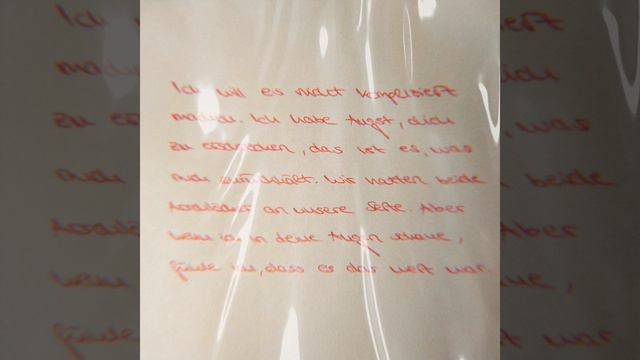 Ich will es nicht kompliziert
machen. Ich habe Angst, dich
zu, das ist es, was
mich zurückhält. Wir hatten beide
an unsere Seite. Aber
wenn ich in deine Augen schaue,
ich, dass es das wert war